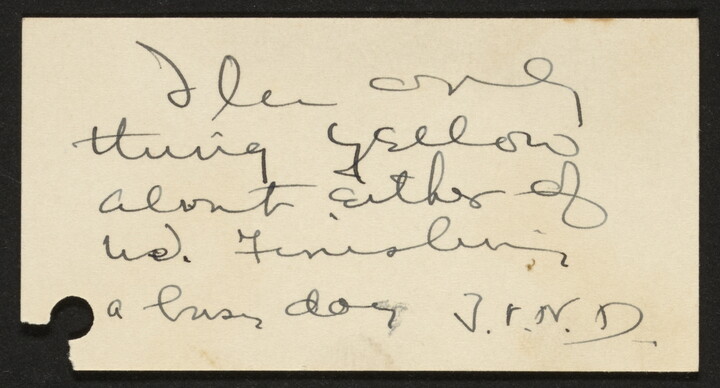 The only
thing yellow
about either of
us. Finishing
a busy day